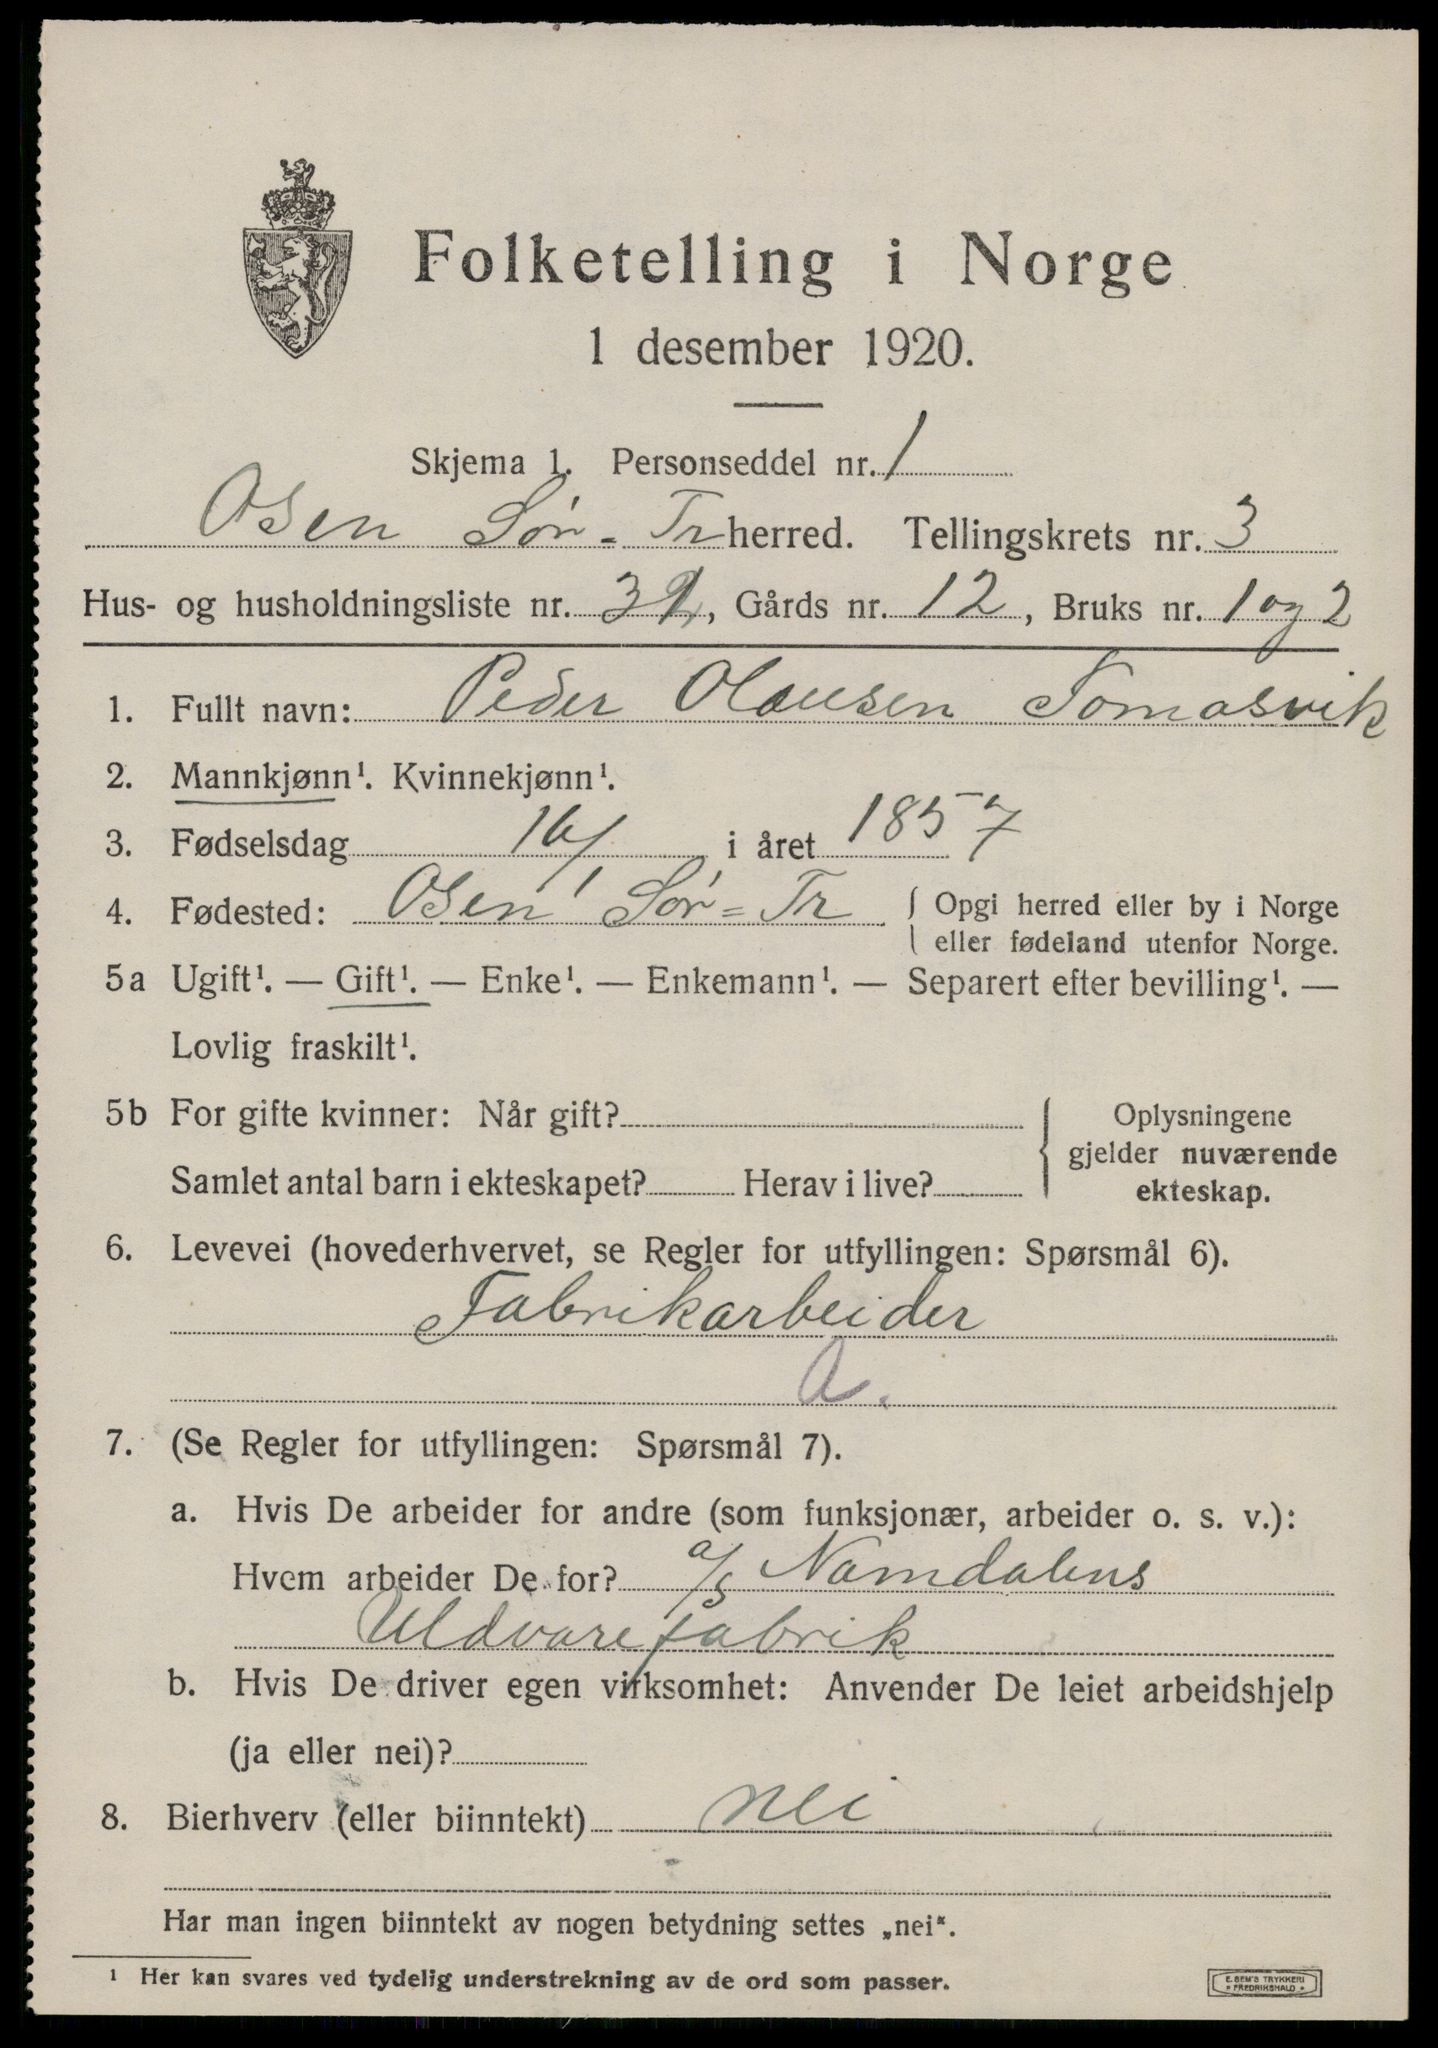 Folketelling i Norge
1 desember 1920.
Skjema 1. Personseddel nr. 1
Osen Sør-Tr herred. Tellingskrets nr. 3
Hus- og husholdningsliste nr. 32, Gårds nr. 12, Bruks nr. 1 og 2
1. Fullt navn: Peder Olausen Tomasvik
2. Mannkjønn¹. Kvinnekjønn¹.
3. Fødselsdag 16/1 i året 1857
4. Fødested: Osen Sør-Tr { Opgi herred eller by i Norge
eller fødeland utenfor Norge.
5a Ugift¹. — Gift¹. — Enke¹. — Enkemann¹. — Separert efter bevilling¹. —
Lovlig fraskilt¹.
5b For gifte kvinner: Når gift?
Samlet antal barn i ekteskapet? Herav i live?
Oplysningene
gjelder nuværende
ekteskap.
6. Levevei (hovederhvervet, se Regler for utfyllingen: Spørsmål 6).
Fabrikarbeider
A.
7. (Se Regler for utfyllingen: Spørsmål 7).
a. Hvis De arbeider for andre (som funksjonær, arbeider o. s. v.):
Hvem arbeider De for? a/s Namdalens
Uldvarefabrik
b. Hvis De driver egen virksomhet: Anvender De leiet arbeidshjelp
(ja eller nei)?
8. Bierhverv (eller biinntekt) nei
Har man ingen biinntekt av nogen betydning settes „nei“.
¹ Her kan svares ved tydelig understrekning av de ord som passer.
E. SEM'S TRYKKERI
• FREDRIKSHALD •